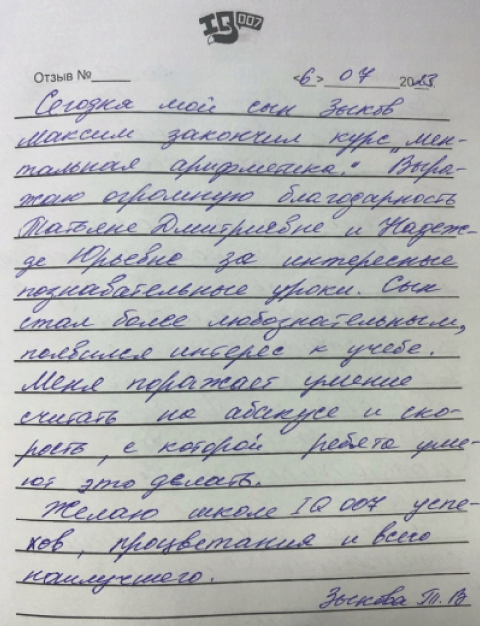 IQ 007
Отзыв №
«6» 07 2023
Сегодня мой сын Зыков
Максим закончил курс „мен-
тальная арифметика." Выра-
жаю огромную благодарность
Татьяне Дмитриевне и Надеж-
де Юрьевне за интересные
познавательные уроки. Сын
стал более любознательным,
появился интерес к учебе.
Меня поражает умение
считать на абакусе и ско-
рость, с которой ребята уме-
ют это делать.
Желаю школе IQ 007 успе-
хов, процветания и всего
наилучшего.
Зыкова Т. В